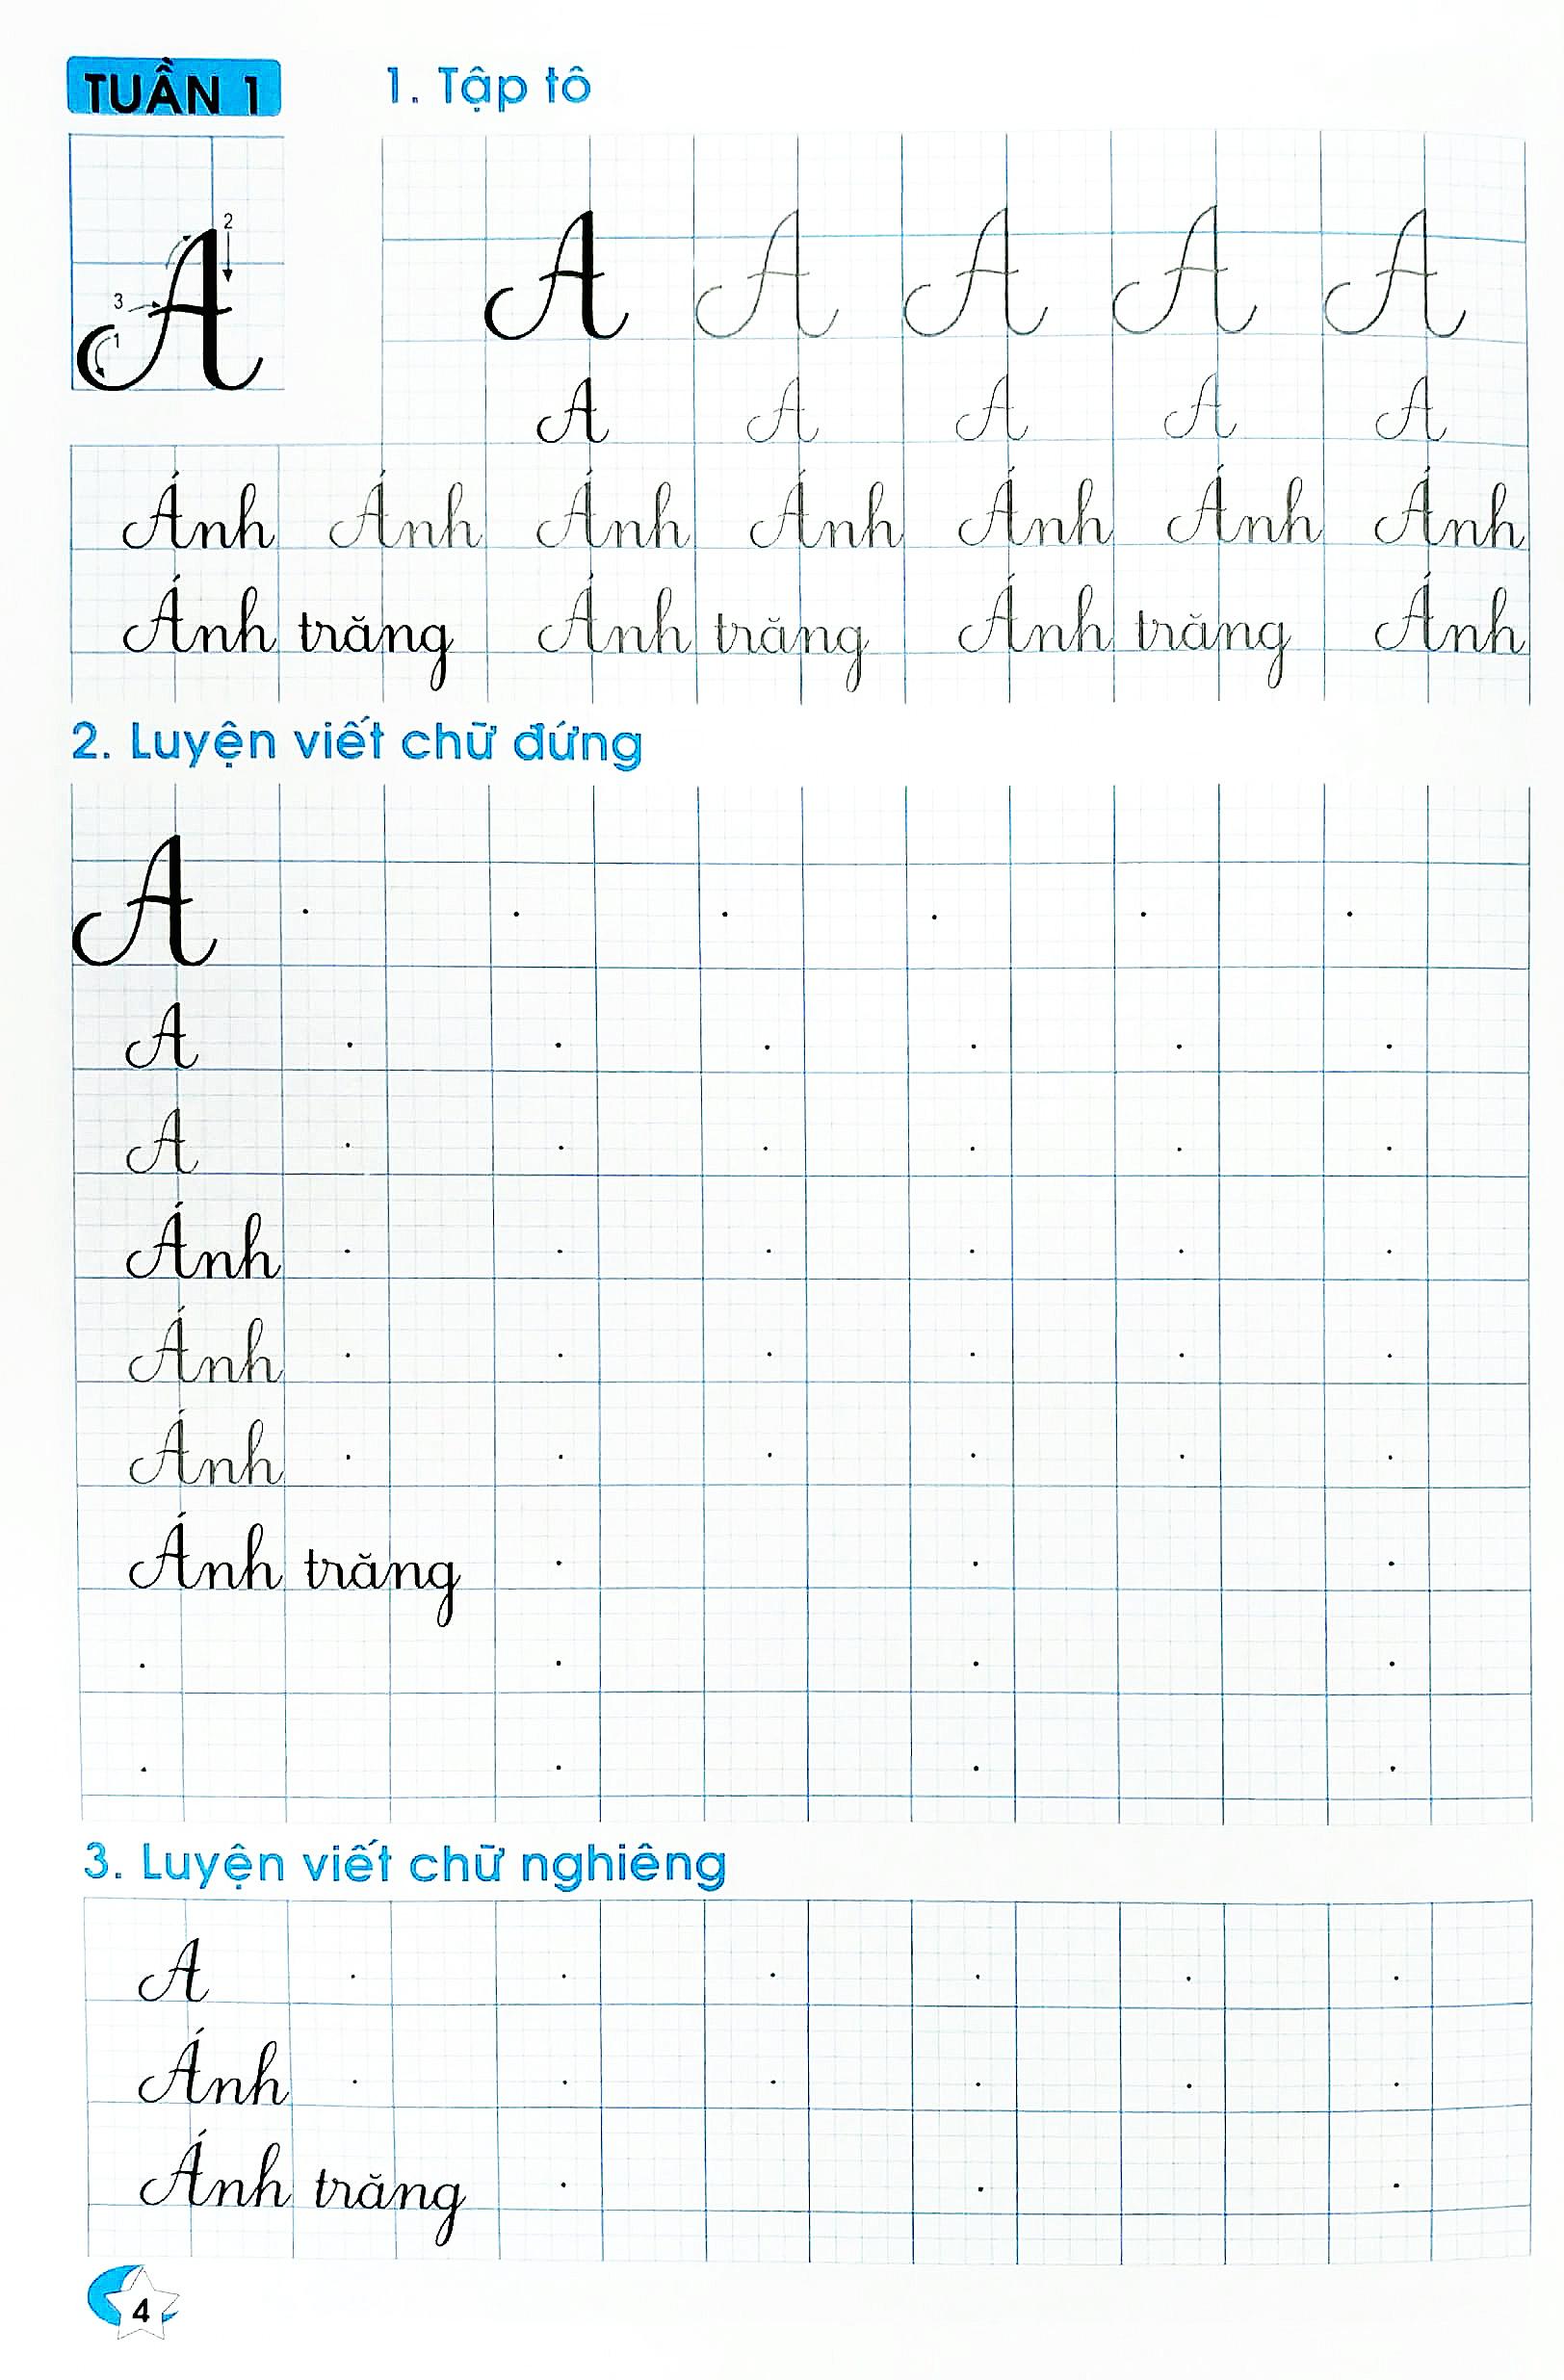 TUẦN 1 1. Tập tô
2
3
1
A A A A A
A A A A A
Ánh Ánh Ánh Ánh Ánh Ánh Ánh
Ánh trăng Ánh trăng Ánh trăng Ánh
2. Luyện viết chữ đứng
A
A
A
Ánh
Ánh
Ánh
Ánh trăng
3. Luyện viết chữ nghiêng
A
Ánh
Ánh trăng
4